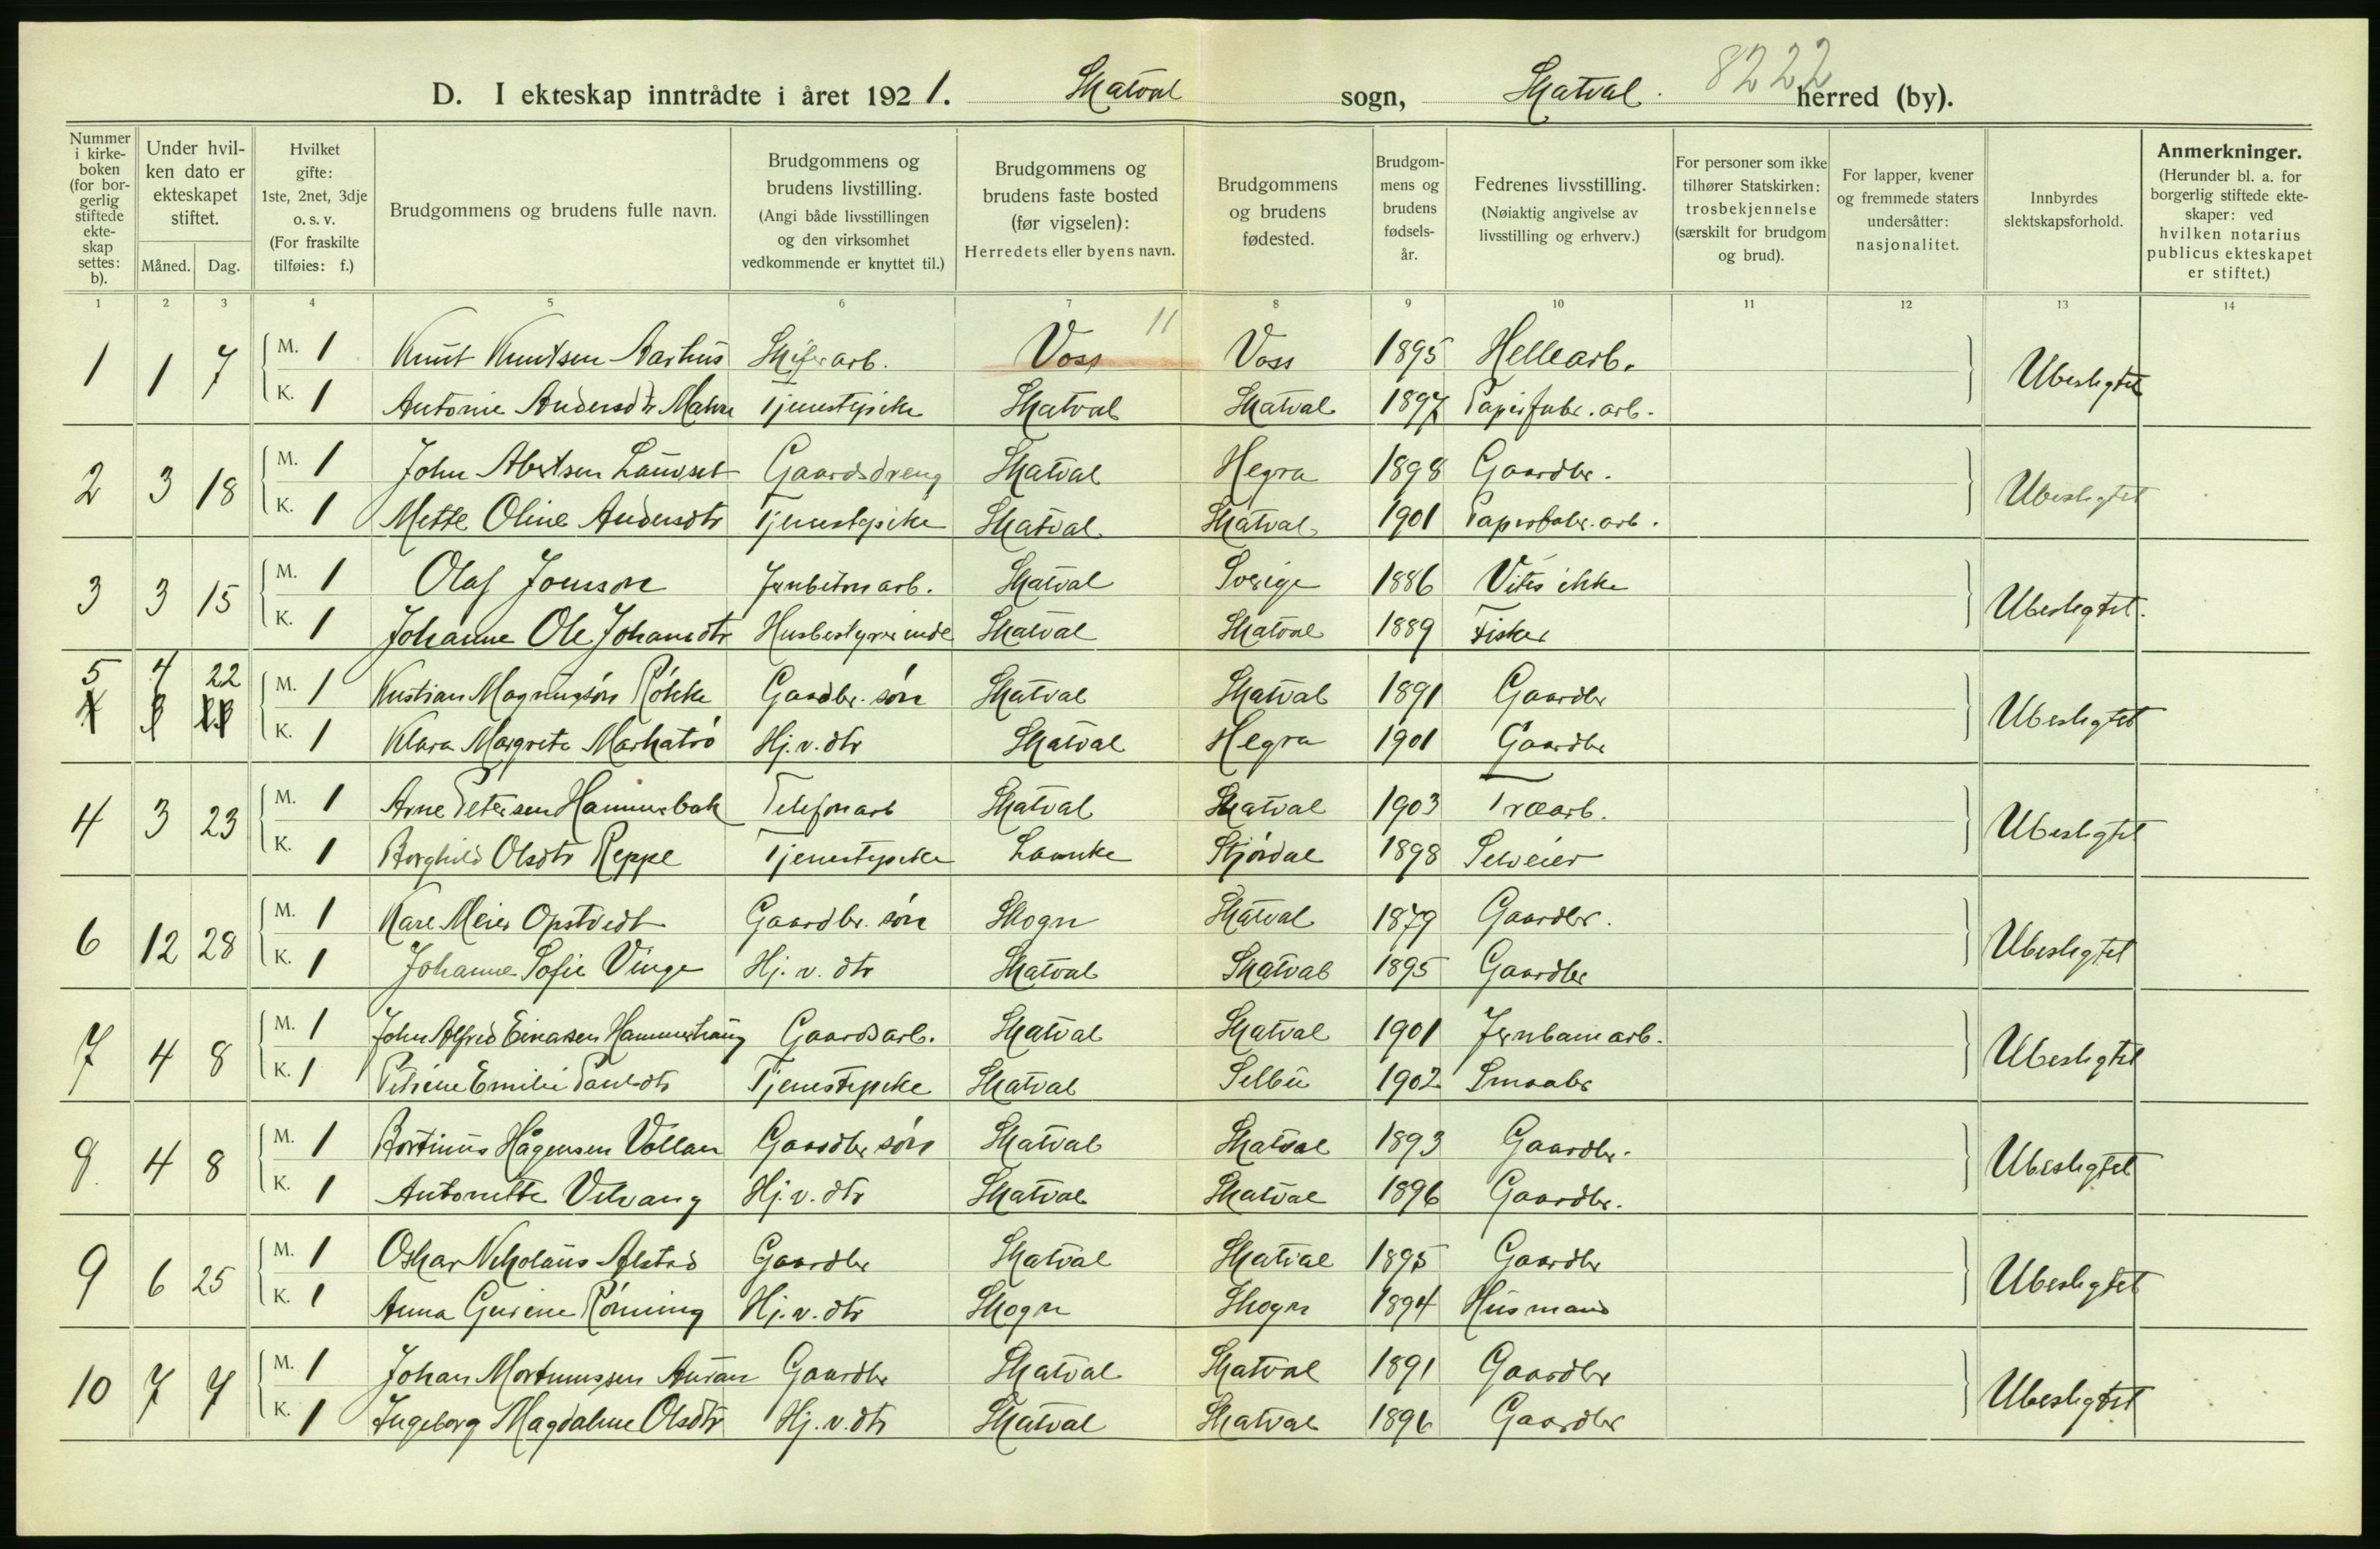 8222
D. I ekteskap inntrådte i året 1921. Skatval sogn, Skatval. herred (by).
Nummer i kirkeboken (for borgerlig stiftede ekteskap settes: b).
Under hvilken dato er ekteskapet stiftet.
Måned. Dag.
Hvilket gifte: 1ste, 2net, 3dje o. s. v. (For fraskilte tilføies: f.)
Brudgommens og brudens fulle navn.
Brudgommens og brudens livstilling. (Angi både livsstillingen og den virksomhet vedkommende er knyttet til.)
Brudgommens og brudens faste bosted (før vigselen): Herredets eller byens navn.
Brudgommens og brudens fødested.
Brudgommens og brudens fødselsår.
Fedrenes livsstilling. (Nøiaktig angivelse av livsstilling og erhverv.)
For personer som ikke tilhører Statskirken: trosbekjennelse (særskilt for brudgom og brud).
For lapper, kvener og fremmede staters undersåtter: nasjonalitet.
Innbyrdes slektskapsforhold.
Anmerkninger. (Herunder bl. a. for borgerlig stiftede ekteskaper: ved hvilken notarius publicus ekteskapet er stiftet.)
1 2 3 4 5 6 7 8 9 10 11 12 13 14
11
1 1 7 M. 1 Knut Knutsen Aarhus Skiferarb. Voss Voss 1895 Hellearb. Ubeslegtet
K. 1 Antonie Andersdtr Tjenestepike Skatval Skatval 1897 Papirfabr. arb.
2 3 18 M. 1 John Gaardsdreng Skatval Hegra 1898 Gaardbr. Ubeslegtet
K. 1 Mette Oline Andersdtr Tjenestepike Skatval Skatval 1901 Papirfabr. arb.
3 3 15 M. 1 Olaf Jonsson Jernbanearb. Skatval Sverige 1886 Vites ikke Ubeslegtet.
K. 1 Johanne Ole Johansdtr Husbestyrerinde Skatval Skatval 1889 Fisker
5 4 22 M. 1 Kristian Magnussøn Røkke Gaardbr. søn Skatval Skatval 1891 Gaardbr Ubeslegtet
K. 1 Klara Margrete Markatrø Hj. v. dtr Skatval Hegra 1901 Gaardbr
4 3 23 M. 1 Arne Petersen Hammerbak Telefonarb Skatval Skatval 1903 Træarb. Ubeslegtet
K. 1 Borghild Olsdtr Reppe Tjenestepike Laanke Stjørdal 1898 Selveier
6 12 28 M. 1 Kare Meier Opstvedt Gaardbr. søn Skogn Skatval 1879 Gaardbr. Ubeslegtet
K. 1 Johanne Sofie Vinge Hj. v. dtr Skatval Skatval 1895 Gaardbr
7 4 8 M. 1 John Alfred Einarsen Hammerhaug Gaardsarb. Skatval Skatval 1901 Jernbanearb. Ubeslegtet
K. 1 Petrine Emilie Paulsdtr Tjenestepike Skatval Selbu 1902 Smaabr
8. 4 8 M. 1 Bortinus Hågensen Vollan Gaardbr søn Skatval Skatval 1893 Gaardbr. Ubeslegtet
K. 1 Antonette Velvang Hj. v. dtr Skatval Skatval 1896 Gaardbr.
9 6 25 M. 1 Oskar Nikolaus Alstad Gaardbr Skatval Skatval 1895 Gaardbr Ubeslegtet
K. 1 Anna Gurine Rønning Hj. v. dtr Skogn Skogn 1894 Husmand
10 7 7 M. 1 Johan Mortinussen Auran Gaardbr Skatval Skatval 1891 Gaardbr Ubeslegtet
K. 1 Ingeborg Magdalene Olsdtr Hj. v. dtr Skatval Skatval 1896 Gaardbr